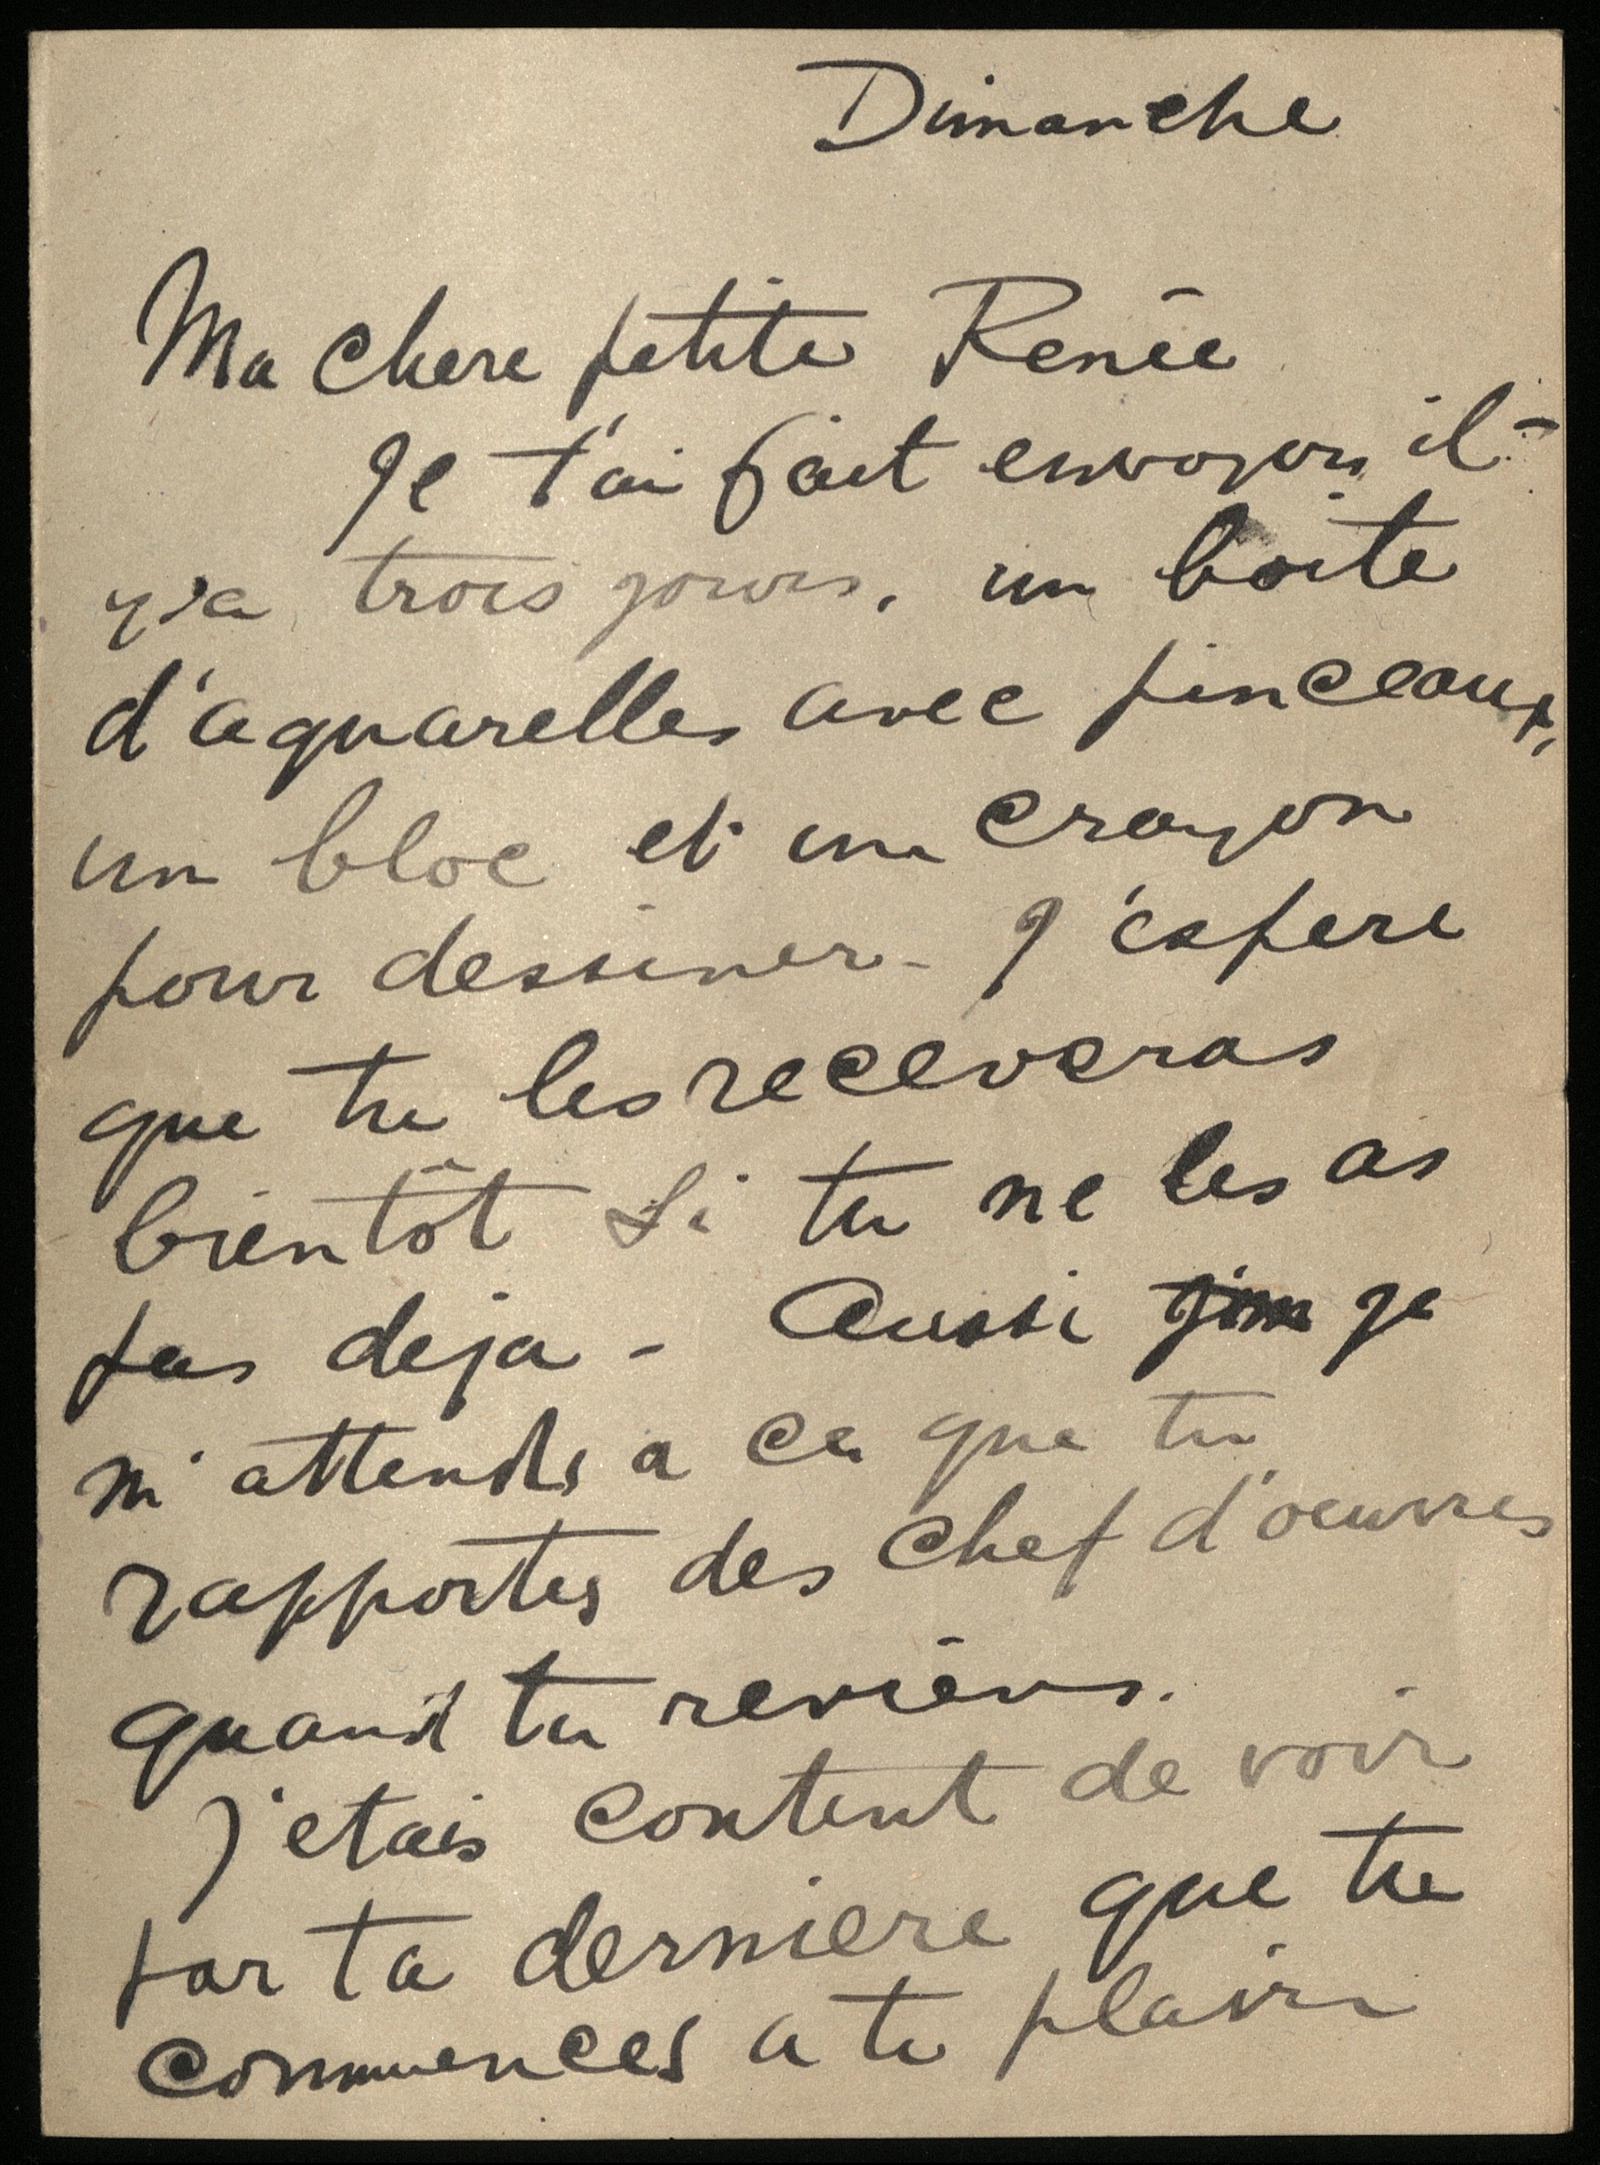 Dimanche
Ma chere petite Renée
Je t'ai fait envoyer, il-
y-a trois jours, un boite
d'aquarelles avec pinceaux,
un bloc et un crayon
pour dessiner - J'espere
que tu les receveras
bientôt si tu ne les as
pas deja - Aussi je
m'attends a ce que tu
rapportes des chef d'oeuvres
quand tu reviens.
J'etais content de voir
par ta derniere que tu
commences a te plair